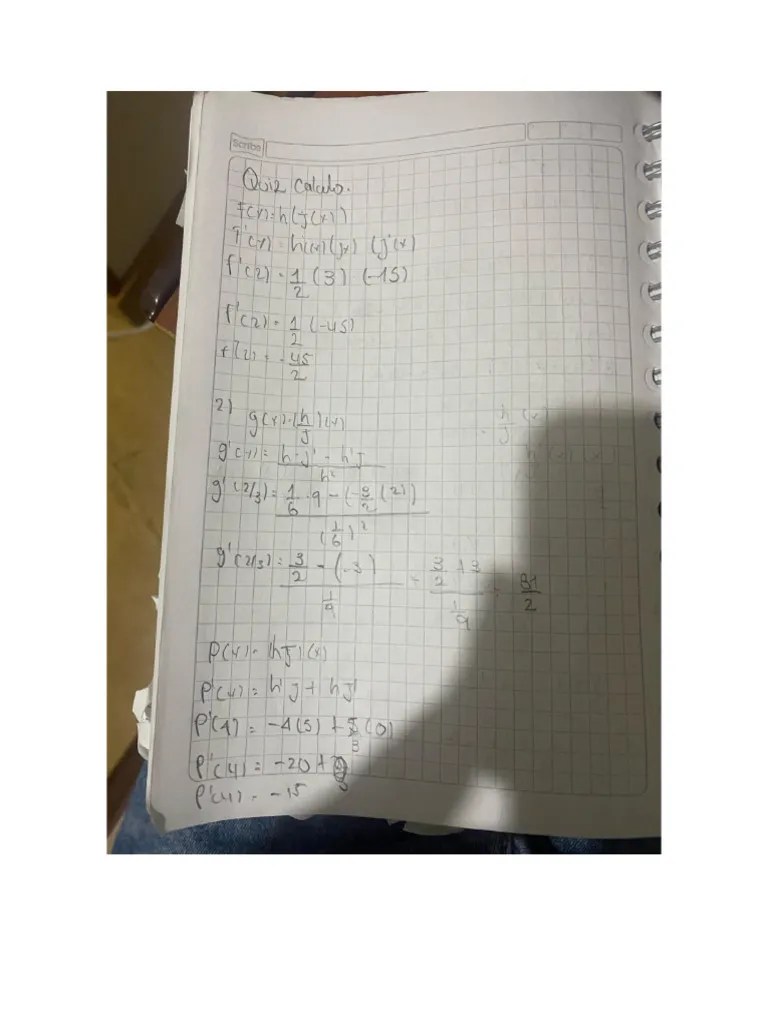 scribe
Quiz calculo.
f(x)=h(j(x))
f'(x) = h'(x)(jx) (j'(x)
f'(2) = 1/2 (3) (-15)
f'(2) = 1/2 (-45)
f'(2) = -45/2
2) g(x) = (h/j)(x)
g'(x) = h·j' - h'j / h²
g'(2/3) = 1/6 · 9 - (-3/2 (2)) / (1/6)²
g'(2/3) = 3/2 - (-3) / 1/9 = 3/2 + 3 / 1/9 = 81/2
P(x) = (hj)(x)
P'(x) = h'j + hj'
P'(4) = -4(5) + 5/3 (0)
P'(4) = -20 +
P'(4) = -15